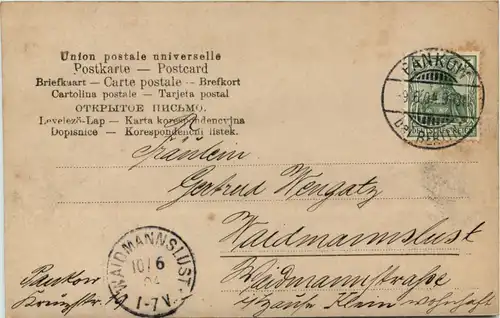 Union postale universelle
Postkarte — Postcard
Briefkaart — Carte postale — Brefkort
Cartolina postale — Tarjeta postal
ОТКРЫТОЕ ПИСЬМО.
Levelező-Lap — Karta korespondencyjna
Dopisnice — Korespondenčni listek.
PANKOW
Fräulein
Gertrud Wengatz
Waidmannslust
Waidmannstraße
Hause Klein wohnhaft
WAIDMANNSLUST
10/6
04
1-7V.
Pankow